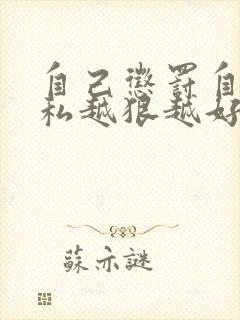 自己惩罚自
私越狠越好
蘇亦謎